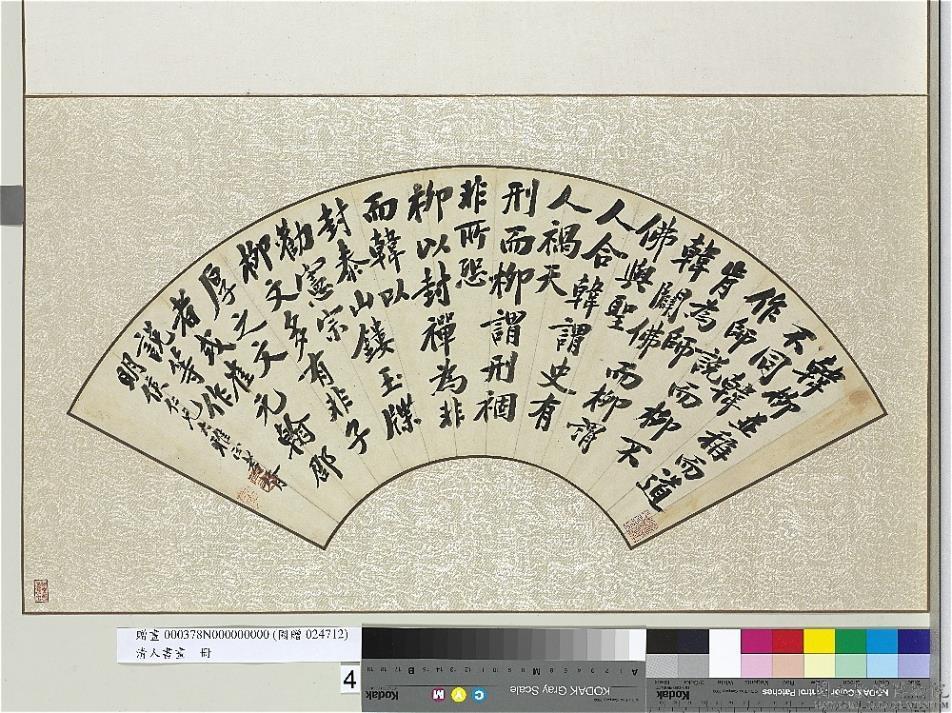 韓柳並稱而道
不同韓
作師說而柳不
肯為師
韓闢佛而柳謂
佛與聖
人合韓謂史有
人禍天
刑而柳謂刑禍
非所恐
柳以封禪為非
而韓以
封泰山鏤玉牒
勸憲宗
柳文多有非子
厚之文
者或崔元翰邵
說等作
仁兄大雅
贈畫 000378N000000000 (國贈 024712)
清人書畫 冊
4
Kodak
C Y M
KODAK Gray Scale
A M B
Kodak
KODAK Color Control Patches